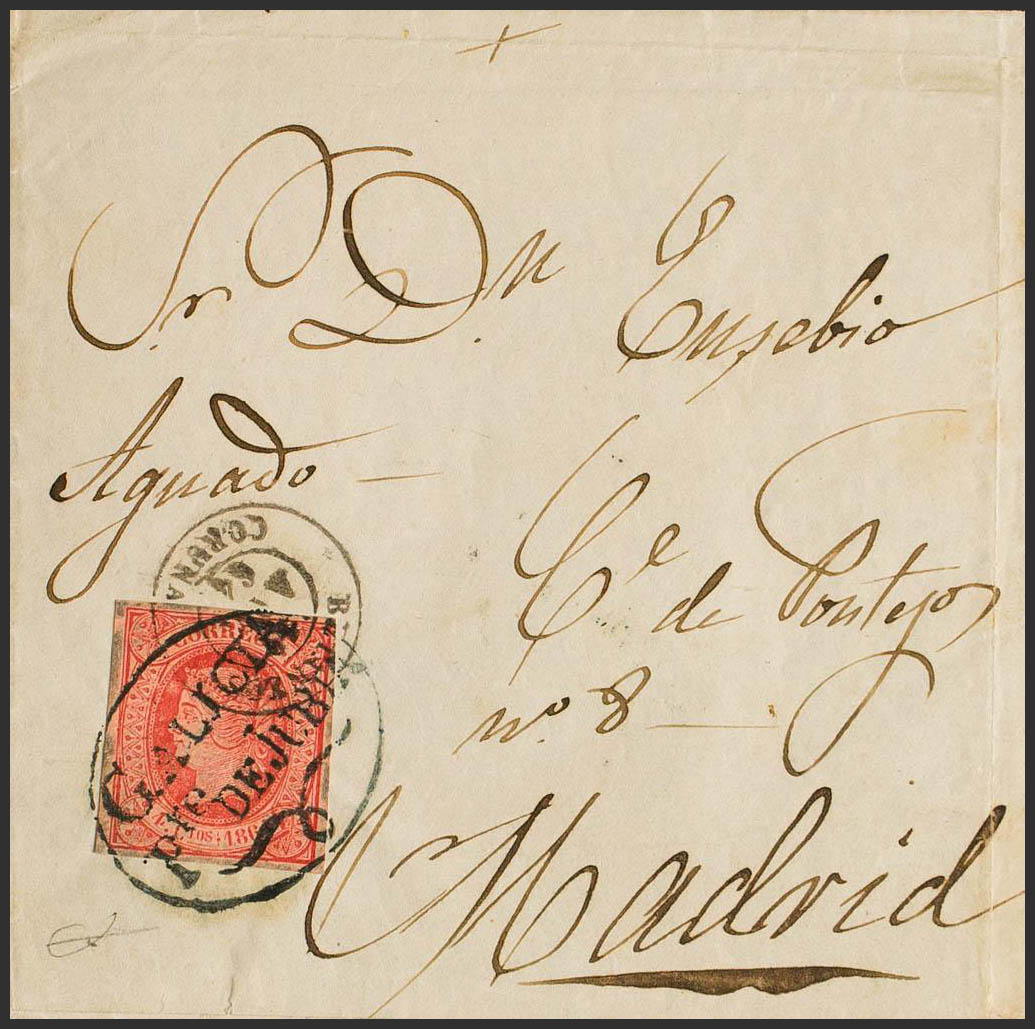 Sr. Dn. Eusebio
Aguado
Ce. de Pontejos
no. 8
Madrid
CORUÑA
CORREOS
GALICIA
PTE DE JUBIA